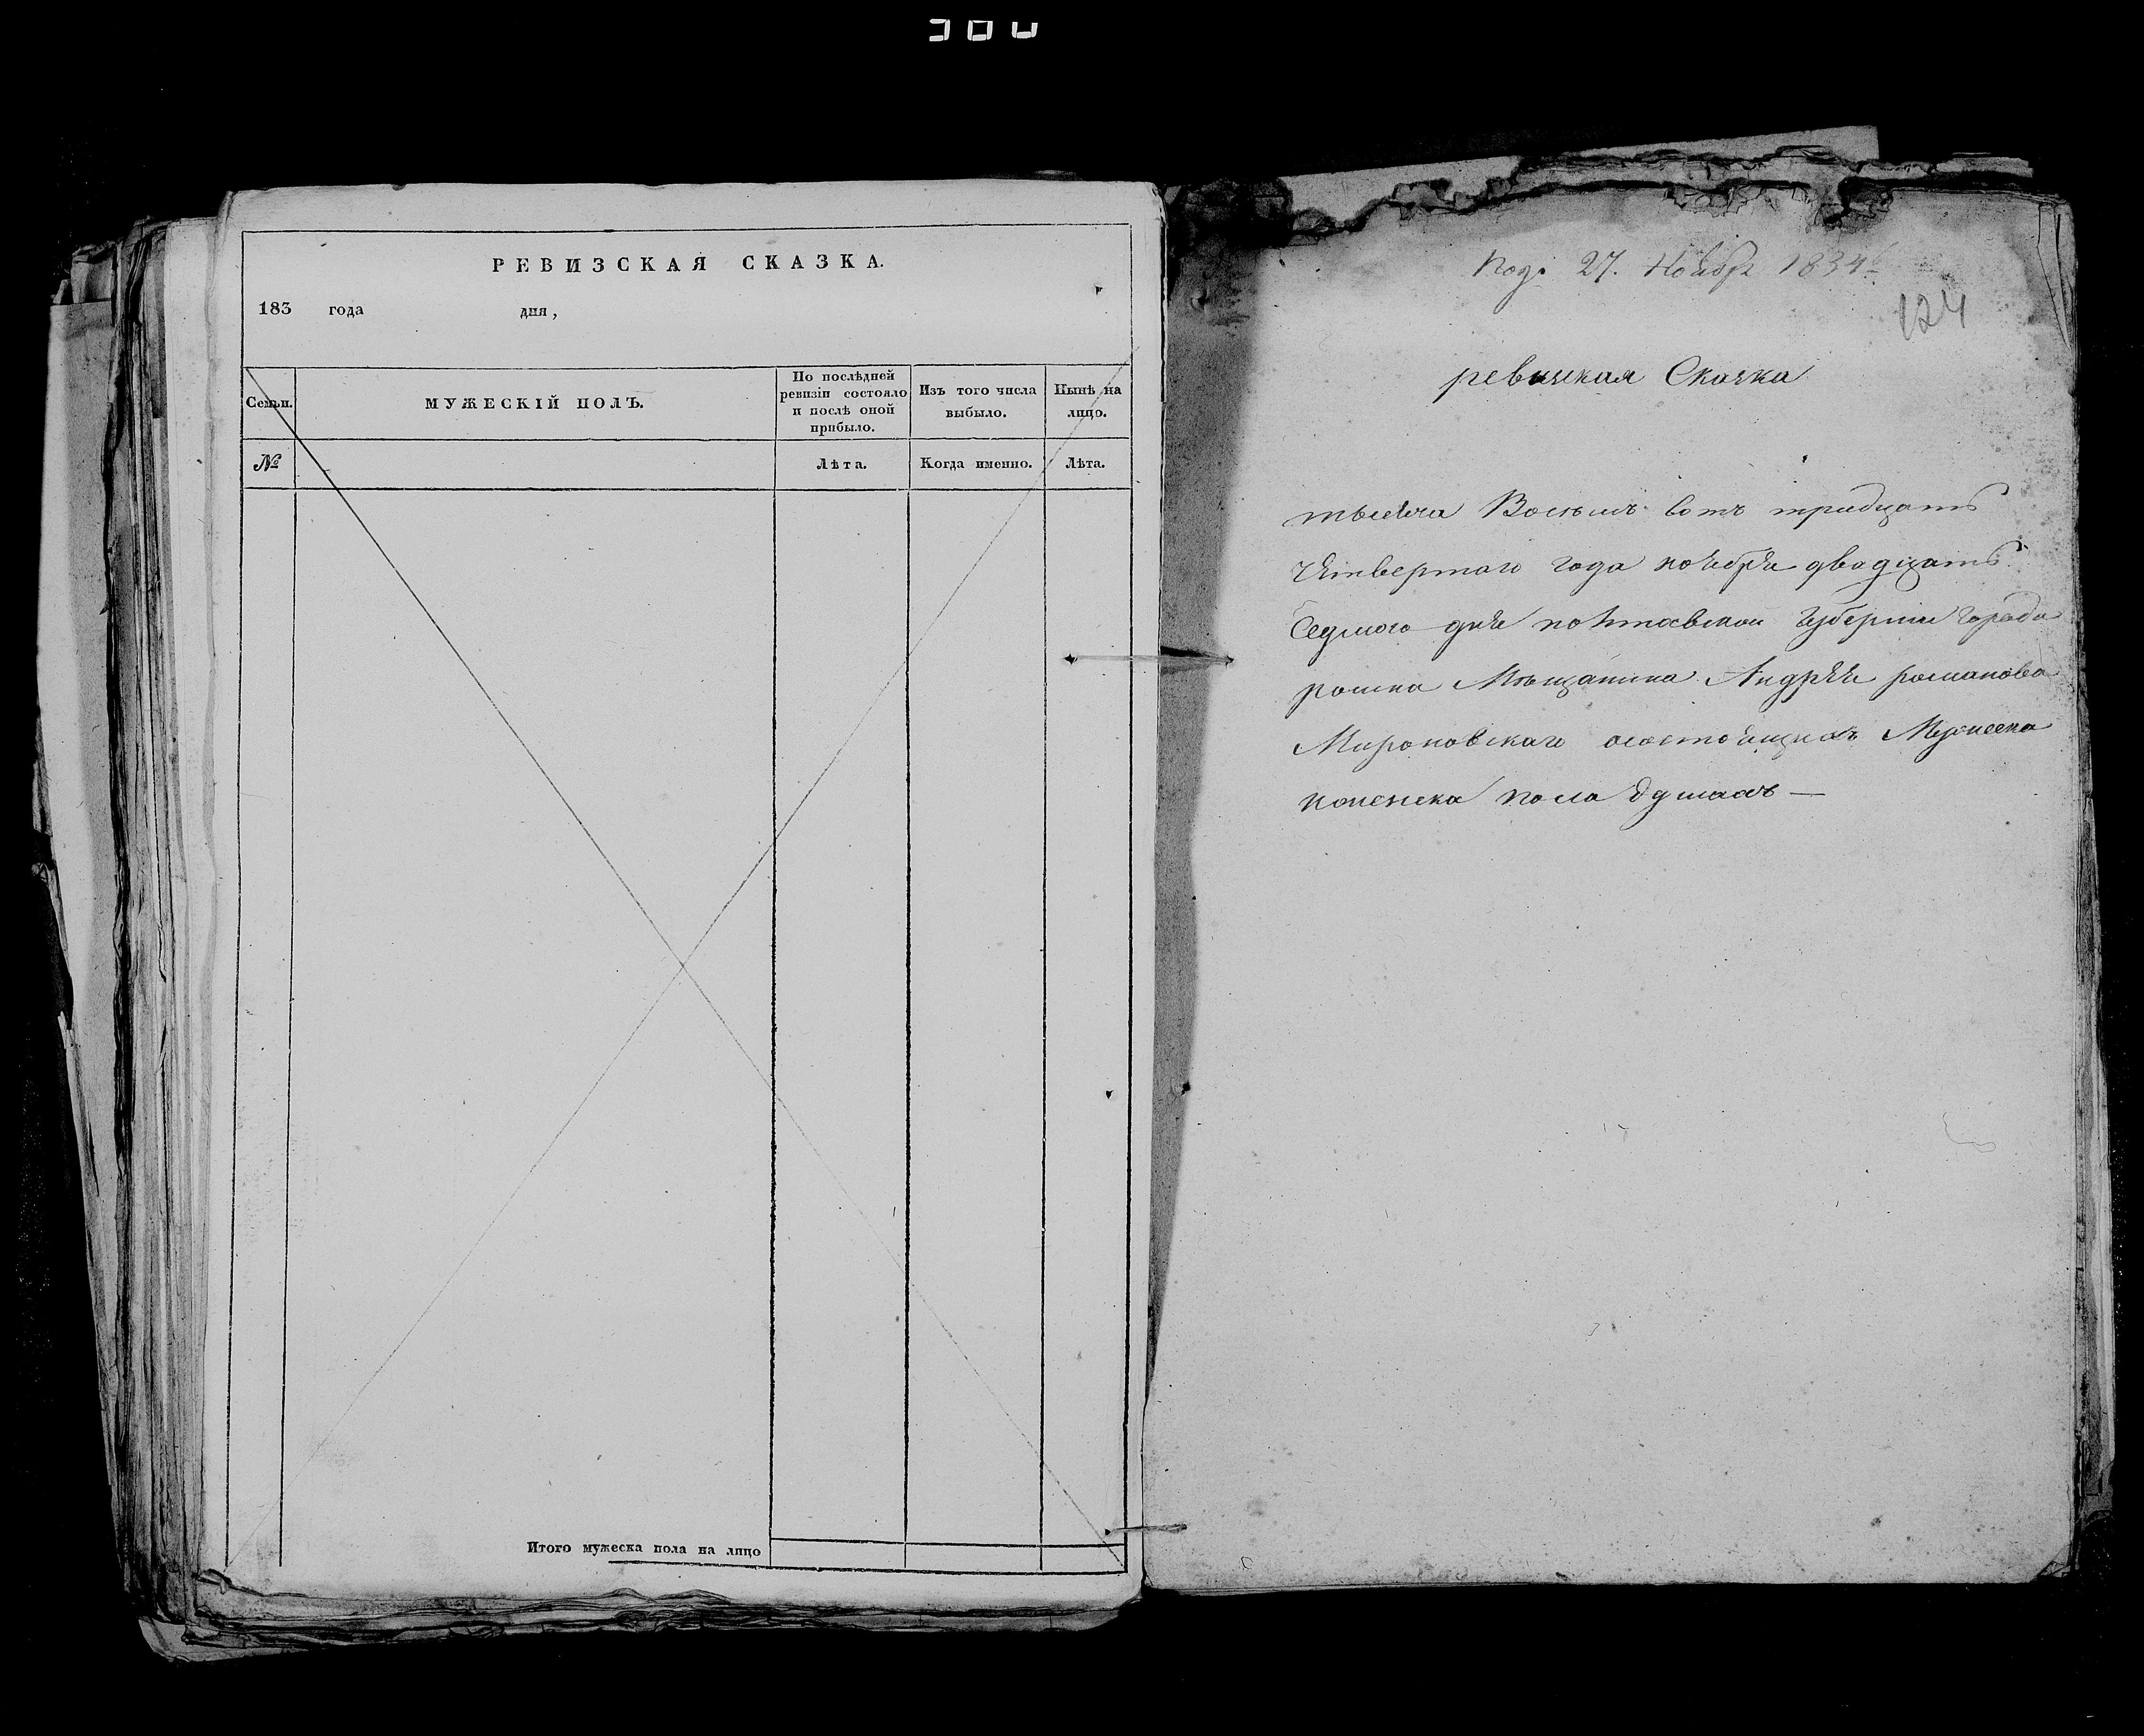 РЕВИЗСКАЯ СКАЗКА.
183 года дня,
Семьи.
МУЖЕСКІЙ ПОЛЪ.
По послѣдней
ревизіи состояло
и послѣ оной
прибыло.
Изъ того числа
выбыло.
Нынѣ на
лицо.
№
Лѣта.
Когда именно.
Лѣта.
Итого мужеска пола на лицо
Под. 27. Ноября 1834
124
ревизкая Сказка
тысяча Восемъ сотъ тридцать
четвертаго года ноября двадцать
Седмого дня полтавской губернии города
ромна Мѣщанина Андрея романова
Мироновскаго осостоящихъ Мужеска
иженска пола душахъ —